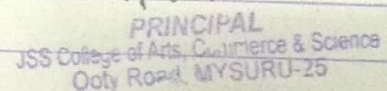 PRINCIPAL
JSS College of Arts, Commerce & Science
Ooty Road, MYSURU-25